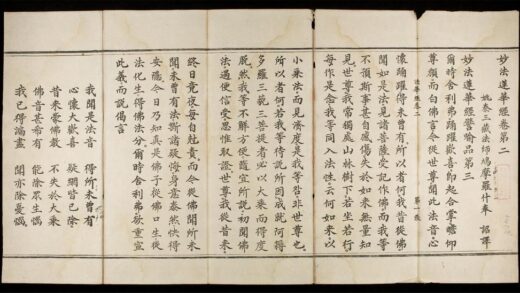 妙法蓮華經卷第二
姚秦三藏法師鳩摩羅什奉 詔譯
妙法蓮華經譬喻品第三
爾時舍利弗踊躍歡喜即起合掌瞻仰
尊顏而白佛言今從世尊聞此法音心
法華經卷二 第一張
懷踊躍得未曾有所以者何我昔從佛
聞如是法見諸菩薩受記作佛而我等
不預斯事甚自感傷失於如來無量知
見世尊我常獨處山林樹下若坐若行
每作是念我等同入法性云何如來以
小乘法而見濟度是我等咎非世尊也
所以者何若我等待說所因成就阿耨
多羅三藐三菩提者必以大乘而得度
脫然我等不解方便隨宜所說初聞佛
法遇便信受思惟取證世尊我從昔來
終日竟夜每自剋責而今從佛聞所未
聞未曾有法斷諸疑悔身意泰然快得
安隱今日乃知真是佛子從佛口生從
法化生得佛法分爾時舍利弗欲重宣
此義而說偈言
我聞是法音 得所未曾有
心懷大歡喜 疑網皆已除
昔來蒙佛教 不失於大乘
佛音甚希有 能除眾生惱
我已得漏盡 聞亦除憂惱